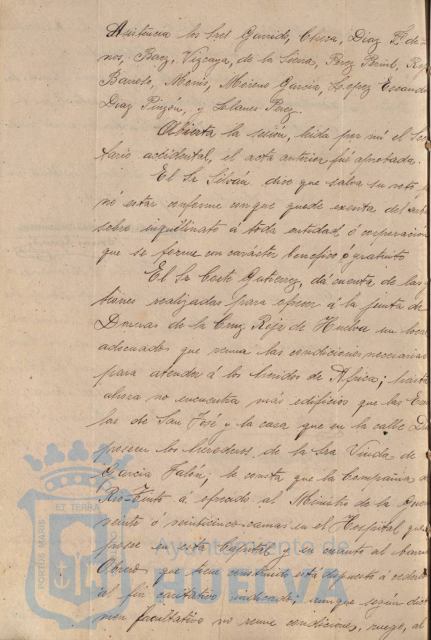 Asistencia los Sres Garrido, Checa, Diaz
nos, Baez, Vizcaya, de la Sierra, Perez
Barreto, Monis, Moreno Garcia, Lopez
Diaz Pinzon, y Llanes Perez.
Abierta la sesión, leida por mi el Secre
tario accidental, el acta anterior fué aprobada.
El Sr Silván dice que salva su voto
no estar conforme conque quede exenta del
sobre inquilinato á toda entidad ó corporacion
que se forme con carácter benefico ó gratuito
El Sr Coeto Gutierrez, dá cuenta de las
tiones realizadas para ofrecer á la junta de
Damas de la Cruz Roja de Huelva un local
adecuados que reuna las condiciones necesarias
para atender á los heridos de Africa; hasta
ahora no encuentra más edificios que las
las de San José y la casa que en la calle
poseen los herederos de la Sra Viuda de
Garcia Jalon; le consta que la Compañia
Rio-Tinto á ofrecido al Ministro de la
veinte ó veinticinco camas en el Hospital que
posee en esta Capital y en cuanto al
Obrero que tiene construido está dispuesto á cederlo
al fin caritativo indicado; aunque según
men facultativo no reune condiciones, ruego, al
PORTUS MARIS
ET TERRA
Ayuntamiento de
HUELVA